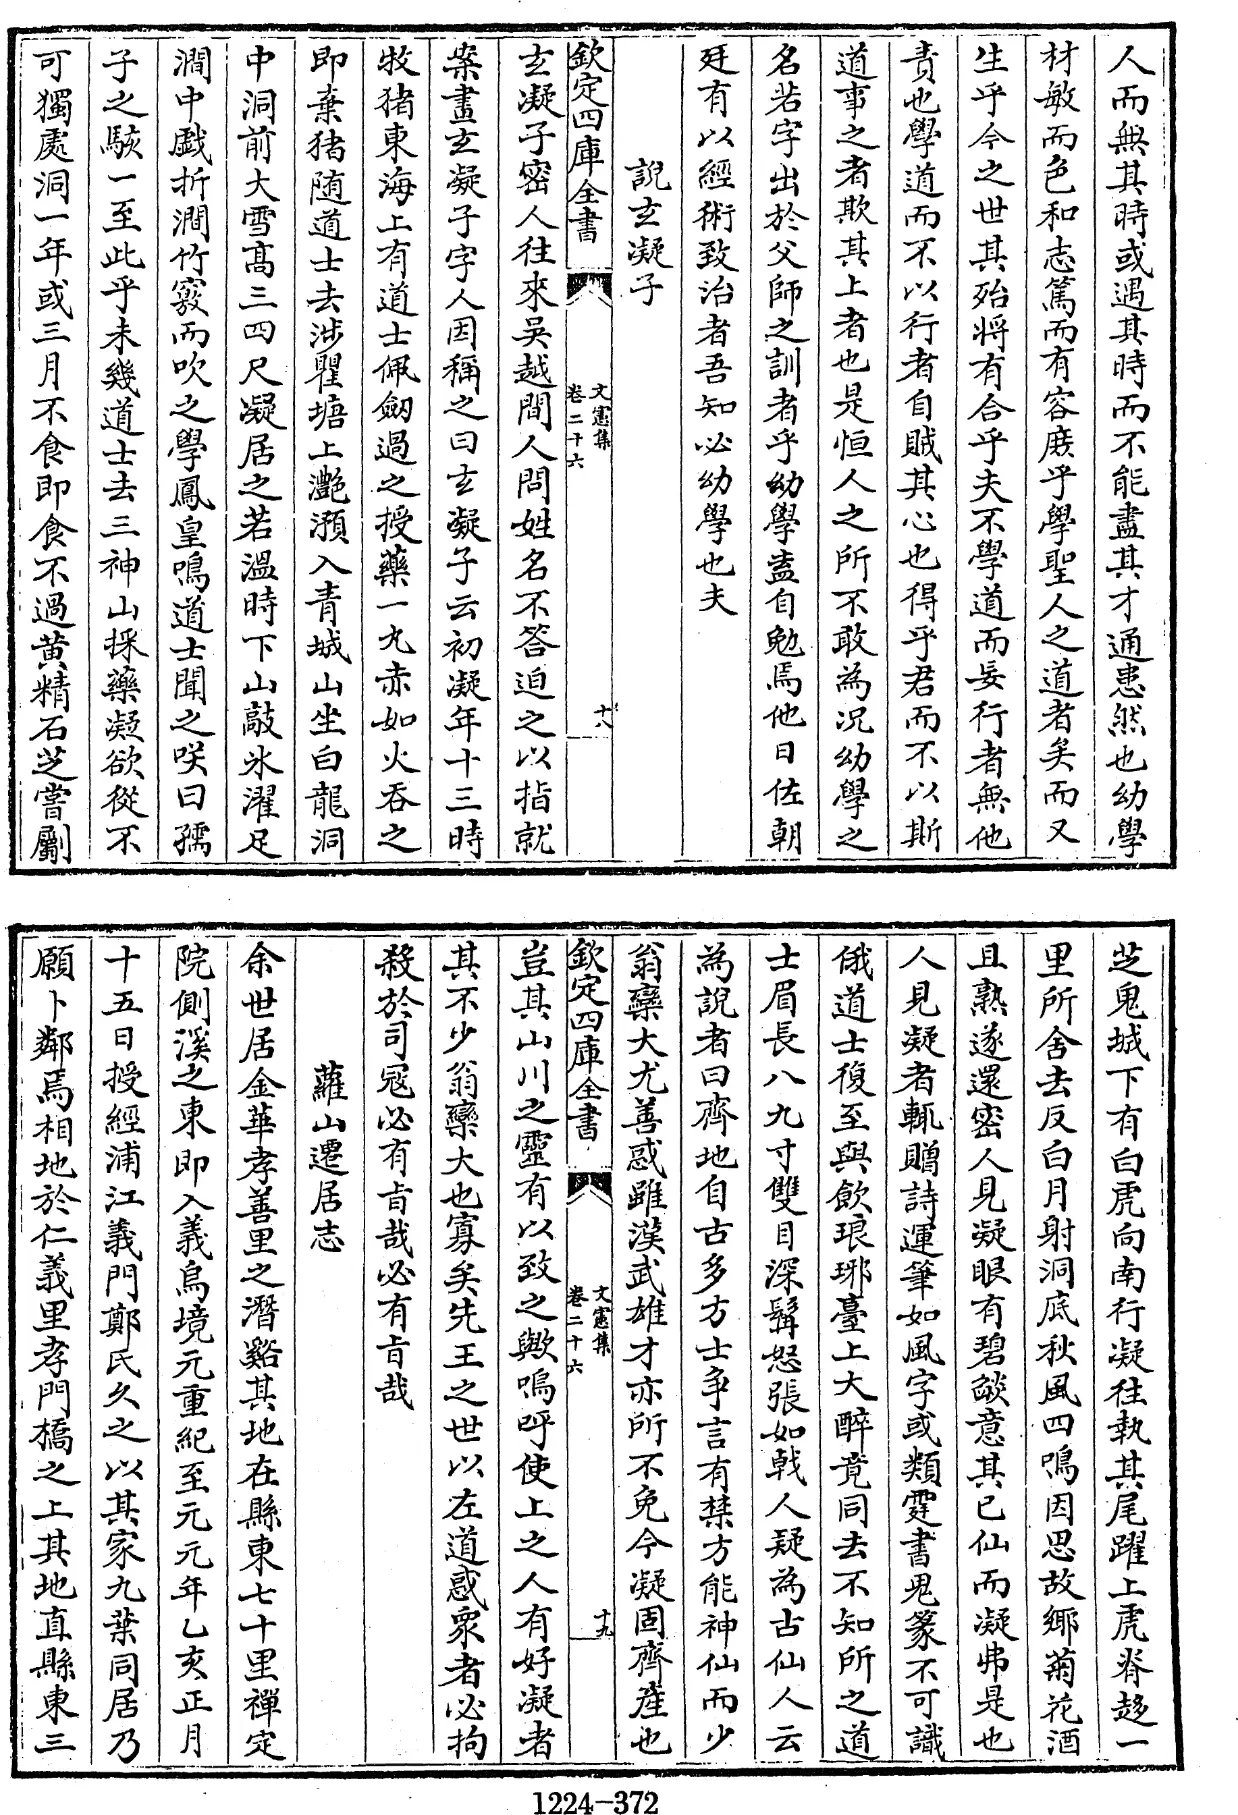 人而無其時或遇其時而不能盡其才通患然也幼學
材敏而色和志篤而有容庻乎學聖人之道者矣而又
生乎今之世其殆將有合乎夫不學道而妄行者無他
責也學道而不以行者自賊其心也得乎君而不以斯
道事之者欺其上者也是恒人之所不敢為況幼學之
名若字出於父師之訓者乎幼學盍自勉焉他日佐朝
廷有以經術致治者吾知必幼學也夫
說玄凝子
欽定四庫全書
文憲集
卷二十六
十八
玄凝子密人往來吳越間人問姓名不答迫之以指就
案畫玄凝子字人因稱之曰玄凝子云初凝年十三時
牧猪東海上有道士佩劔過之授藥一丸赤如火吞之
即棄猪随道士去涉瞿塘上灔澦入青城山坐白龍洞
中洞前大雪髙三四尺凝居之若溫時下山敲氷濯足
澗中戯折澗竹竅而吹之學鳳皇鳴道士聞之咲曰孺
子之騃一至此乎未幾道士去三神山採藥凝欲從不
可獨處洞一年或三月不食即食不過黄精石芝嘗劚
芝鬼城下有白虎向南行凝往執其尾躍上虎脊趍一
里所舍去反白月射洞底秋風四鳴因思故鄉菊花酒
且熟遂還密人見凝眼有碧燄意其已仙而凝弗是也
人見凝者輒贈詩運筆如風字或類霆書鬼篆不可識
俄道士復至與飲琅琊臺上大醉竟同去不知所之道
士眉長八九寸雙目深髯怒張如戟人疑為古仙人云
為說者曰齊地自古多方士争言有禁方能神仙而少
翁欒大尤善惑雖漢武雄才亦所不免今凝固齊産也
欽定四庫全書
文憲集
卷二十六
十九
豈其山川之靈有以致之歟嗚呼使上之人有好凝者
其不少翁欒大也寡矣先王之世以左道惑衆者必拘
殺於司冦必有旨哉必有旨哉
蘿山遷居志
余世居金華孝善里之潛谿其地在縣東七十里禪定
院側溪之東即入義烏境元重紀至元元年乙亥正月
十五日授經浦江義門鄭氏久之以其家九葉同居乃
願卜鄰焉相地於仁義里孝門橋之上其地直縣東三
1224-372